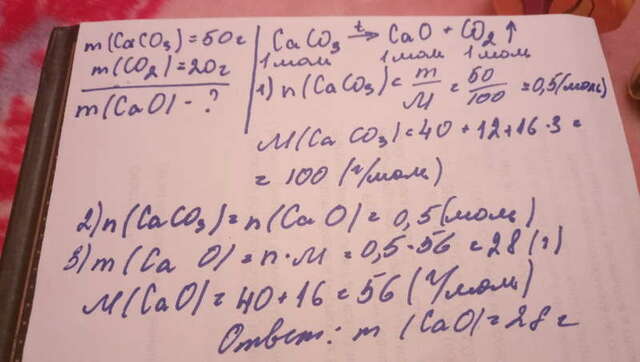 m(CaCO₃)=50г
m(CO₂)=20г
m(CaO)-?
CaCO₃ →t CaO + CO₂↑
1моль 1моль 1моль
1) n(CaCO₃)= m/M = 50/100 =0,5(моль)
M(CaCO₃)=40+12+16·3=
=100 (г/моль)
2) n(CaCO₃)=n(CaO)=0,5(моль)
3) m(CaO)=n·M=0,5·56=28(г)
M(CaO)=40+16=56(г/моль)
Ответ: m(CaO)=28г